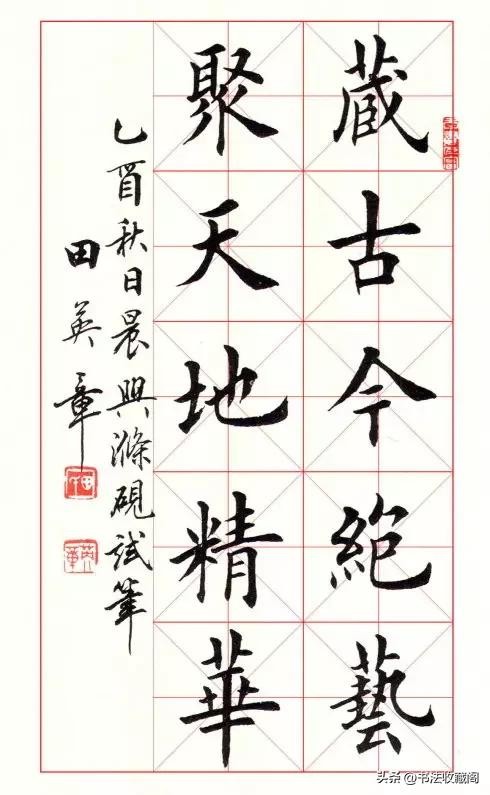 藏古今絕藝
聚天地精華
乙酉秋日晨興滌硯試筆
田英章
田
英章
头条 @书法收藏阁